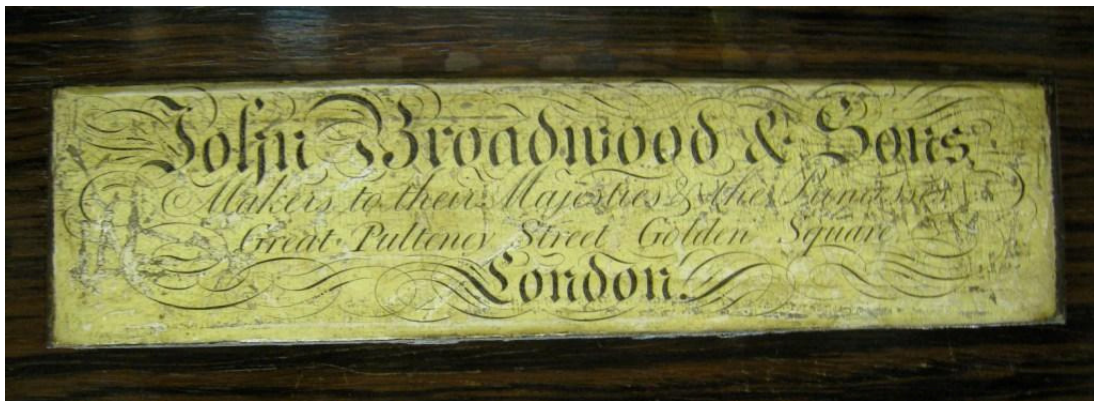 John Broadwood & Sons
Makers to their Majesties & the Princesses
Great Pulteney Street Golden Square
London.